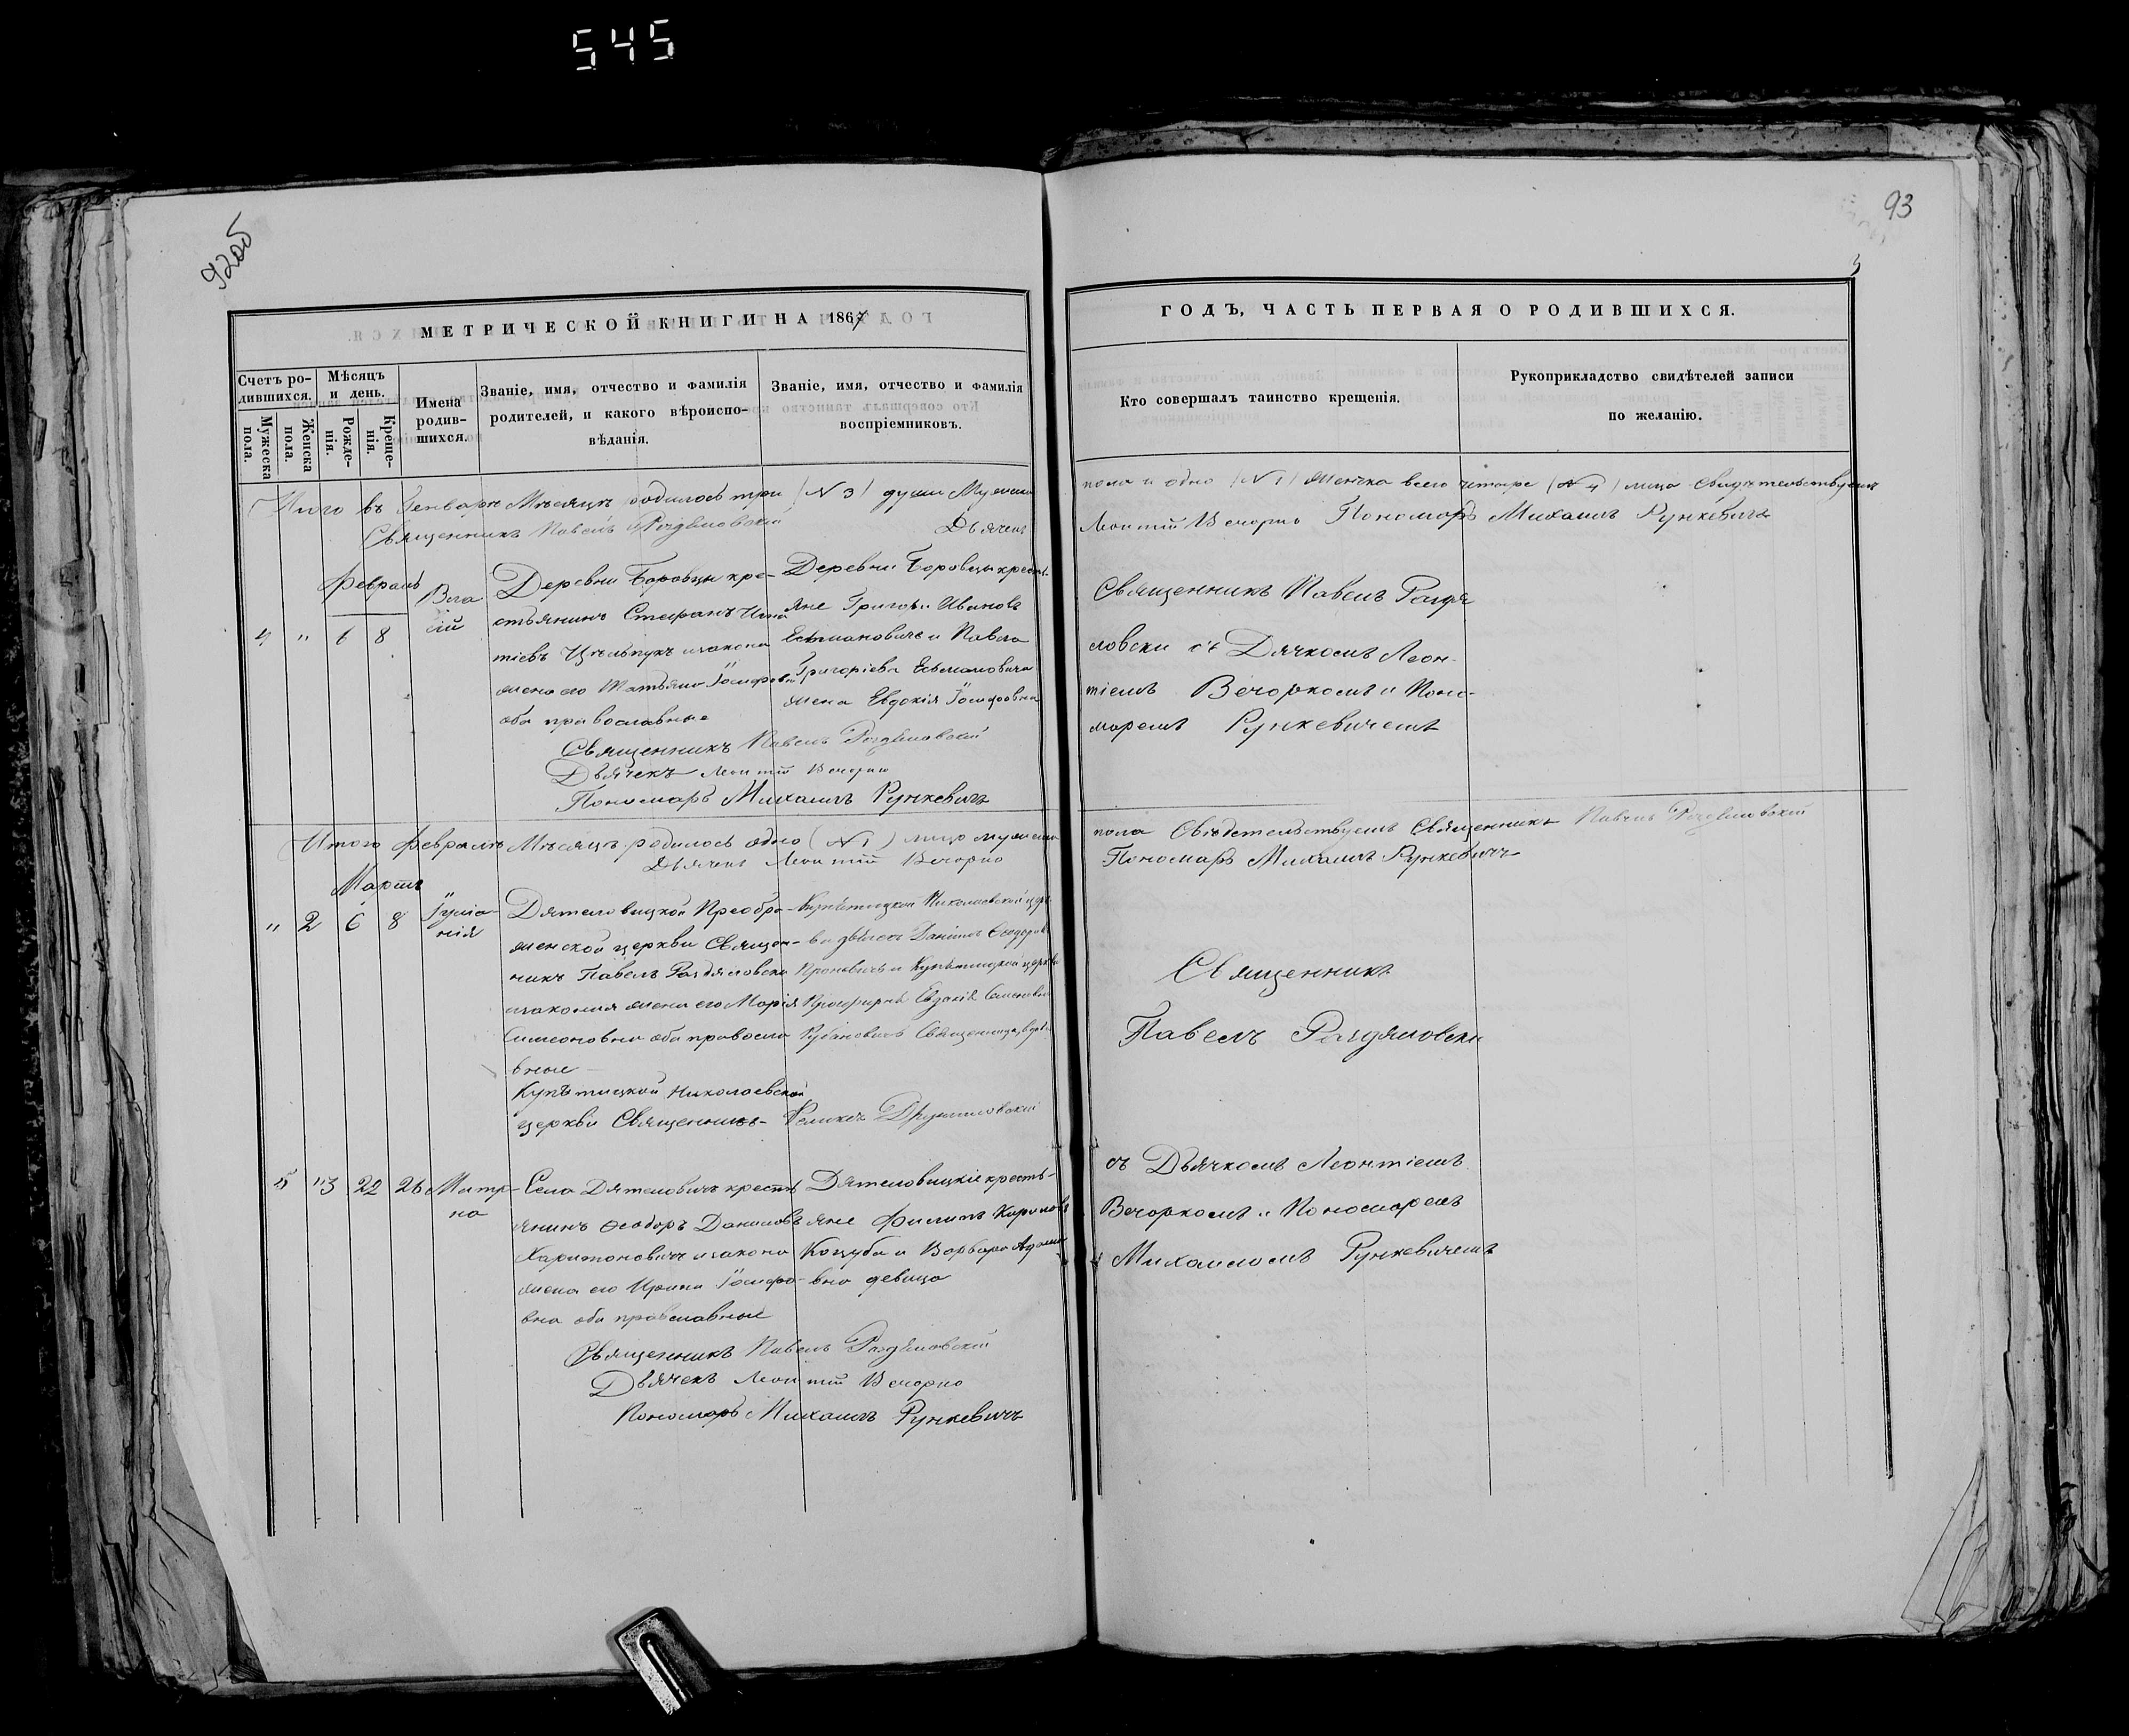 545
92об
93
3
МЕТРИЧЕСКОЙ КНИГИ НА 1867
ГОДЪ, ЧАСТЬ ПЕРВАЯ О РОДИВШИХСЯ.
Счетъ ро-
дившихся.
Мужеска
пола.
Женска
пола.
Мѣсяцъ
и день.
Рожде-
нія.
Креще-
нія.
Имена
родив-
шихся.
Званіе, имя, отчество и фамилія
родителей, и какого вѣроиспо-
вѣданія.
Званіе, имя, отчество и фамилія
воспріемниковъ.
Кто совершалъ таинство крещенія.
Рукоприкладство свидѣтелей записи
по желанію.
Итого въ Генварѣ Мѣсяцѣ родилось три (N 3) души Мужеска
пола и одно (N 1) женска всего четыре (N 4) лица Свидѣтельствуемъ
Священникъ Павелъ Раздяловскій Дьячекъ
Леонтій Вечорко Пономарь Михаилъ Рункевичъ
Февраль
4 " 6 8
Деревни Боровцы кре-
стьянинъ Стефанъ Игна
тіевъ
жена его Татьяна Іосифова
оба православные
Деревни Боровцы кресть-
яне Григори Ивановъ
Есьмановичъ и Павла
Григоріева Есьмановича
жена Евдокія Іосифовна
Священникъ Павелъ Раздя
ловски съ Дячкомъ Леон-
тіемъ Вечоркомъ и Поно-
маремъ Рункевичемъ
Священникъ Павелъ Раздяловскій
Дьячекъ Леонтій Вечорко
Пономарь Михаилъ Рункевичъ
Итого Февралѣ Мѣсяцѣ родилось одно (N 1) лицо мужеска
пола Свидетельствуемъ Священникъ Павелъ Раздяловскій
Дьячекъ Леонтій Вечорко
Пономарь Михаилъ Рункевичъ
Мартъ
" 2 6 8
Іуліа-
нія
Дятеловицкой Преобра-
женской церкви Священ-
никъ Павелъ Раздяловски
и законная жена его Марія
Симеоновна оба правосла
вные
Купѣтицкой Николаевской
церкви Священникъ
Купѣтицкой Николаевской церк
ви дьячекъ Даніилъ Феодоров
и Купѣтицкой церкви
Священникъ
Павелъ Раздяловски
5 "3 22 26
Матр-
на
Села Дятеловичъ кресть
янинъ Феодоръ Даниловъ
Харитоновичъ и закона
жена его Ирина Іосифо-
вна оба православные
Дятеловицкіе кресть-
яне Филипъ Кириловъ
Коцуба и Варвара Адамо
вна девица
съ Дьячкомъ Леонтіемъ
Вечоркомъ и Пономаремъ
Михаиломъ Рункевичемъ
Священникъ Павелъ Раздяловскій
Дьячекъ Леонтій Вечорко
Пономарь Михаилъ Рункевичъ